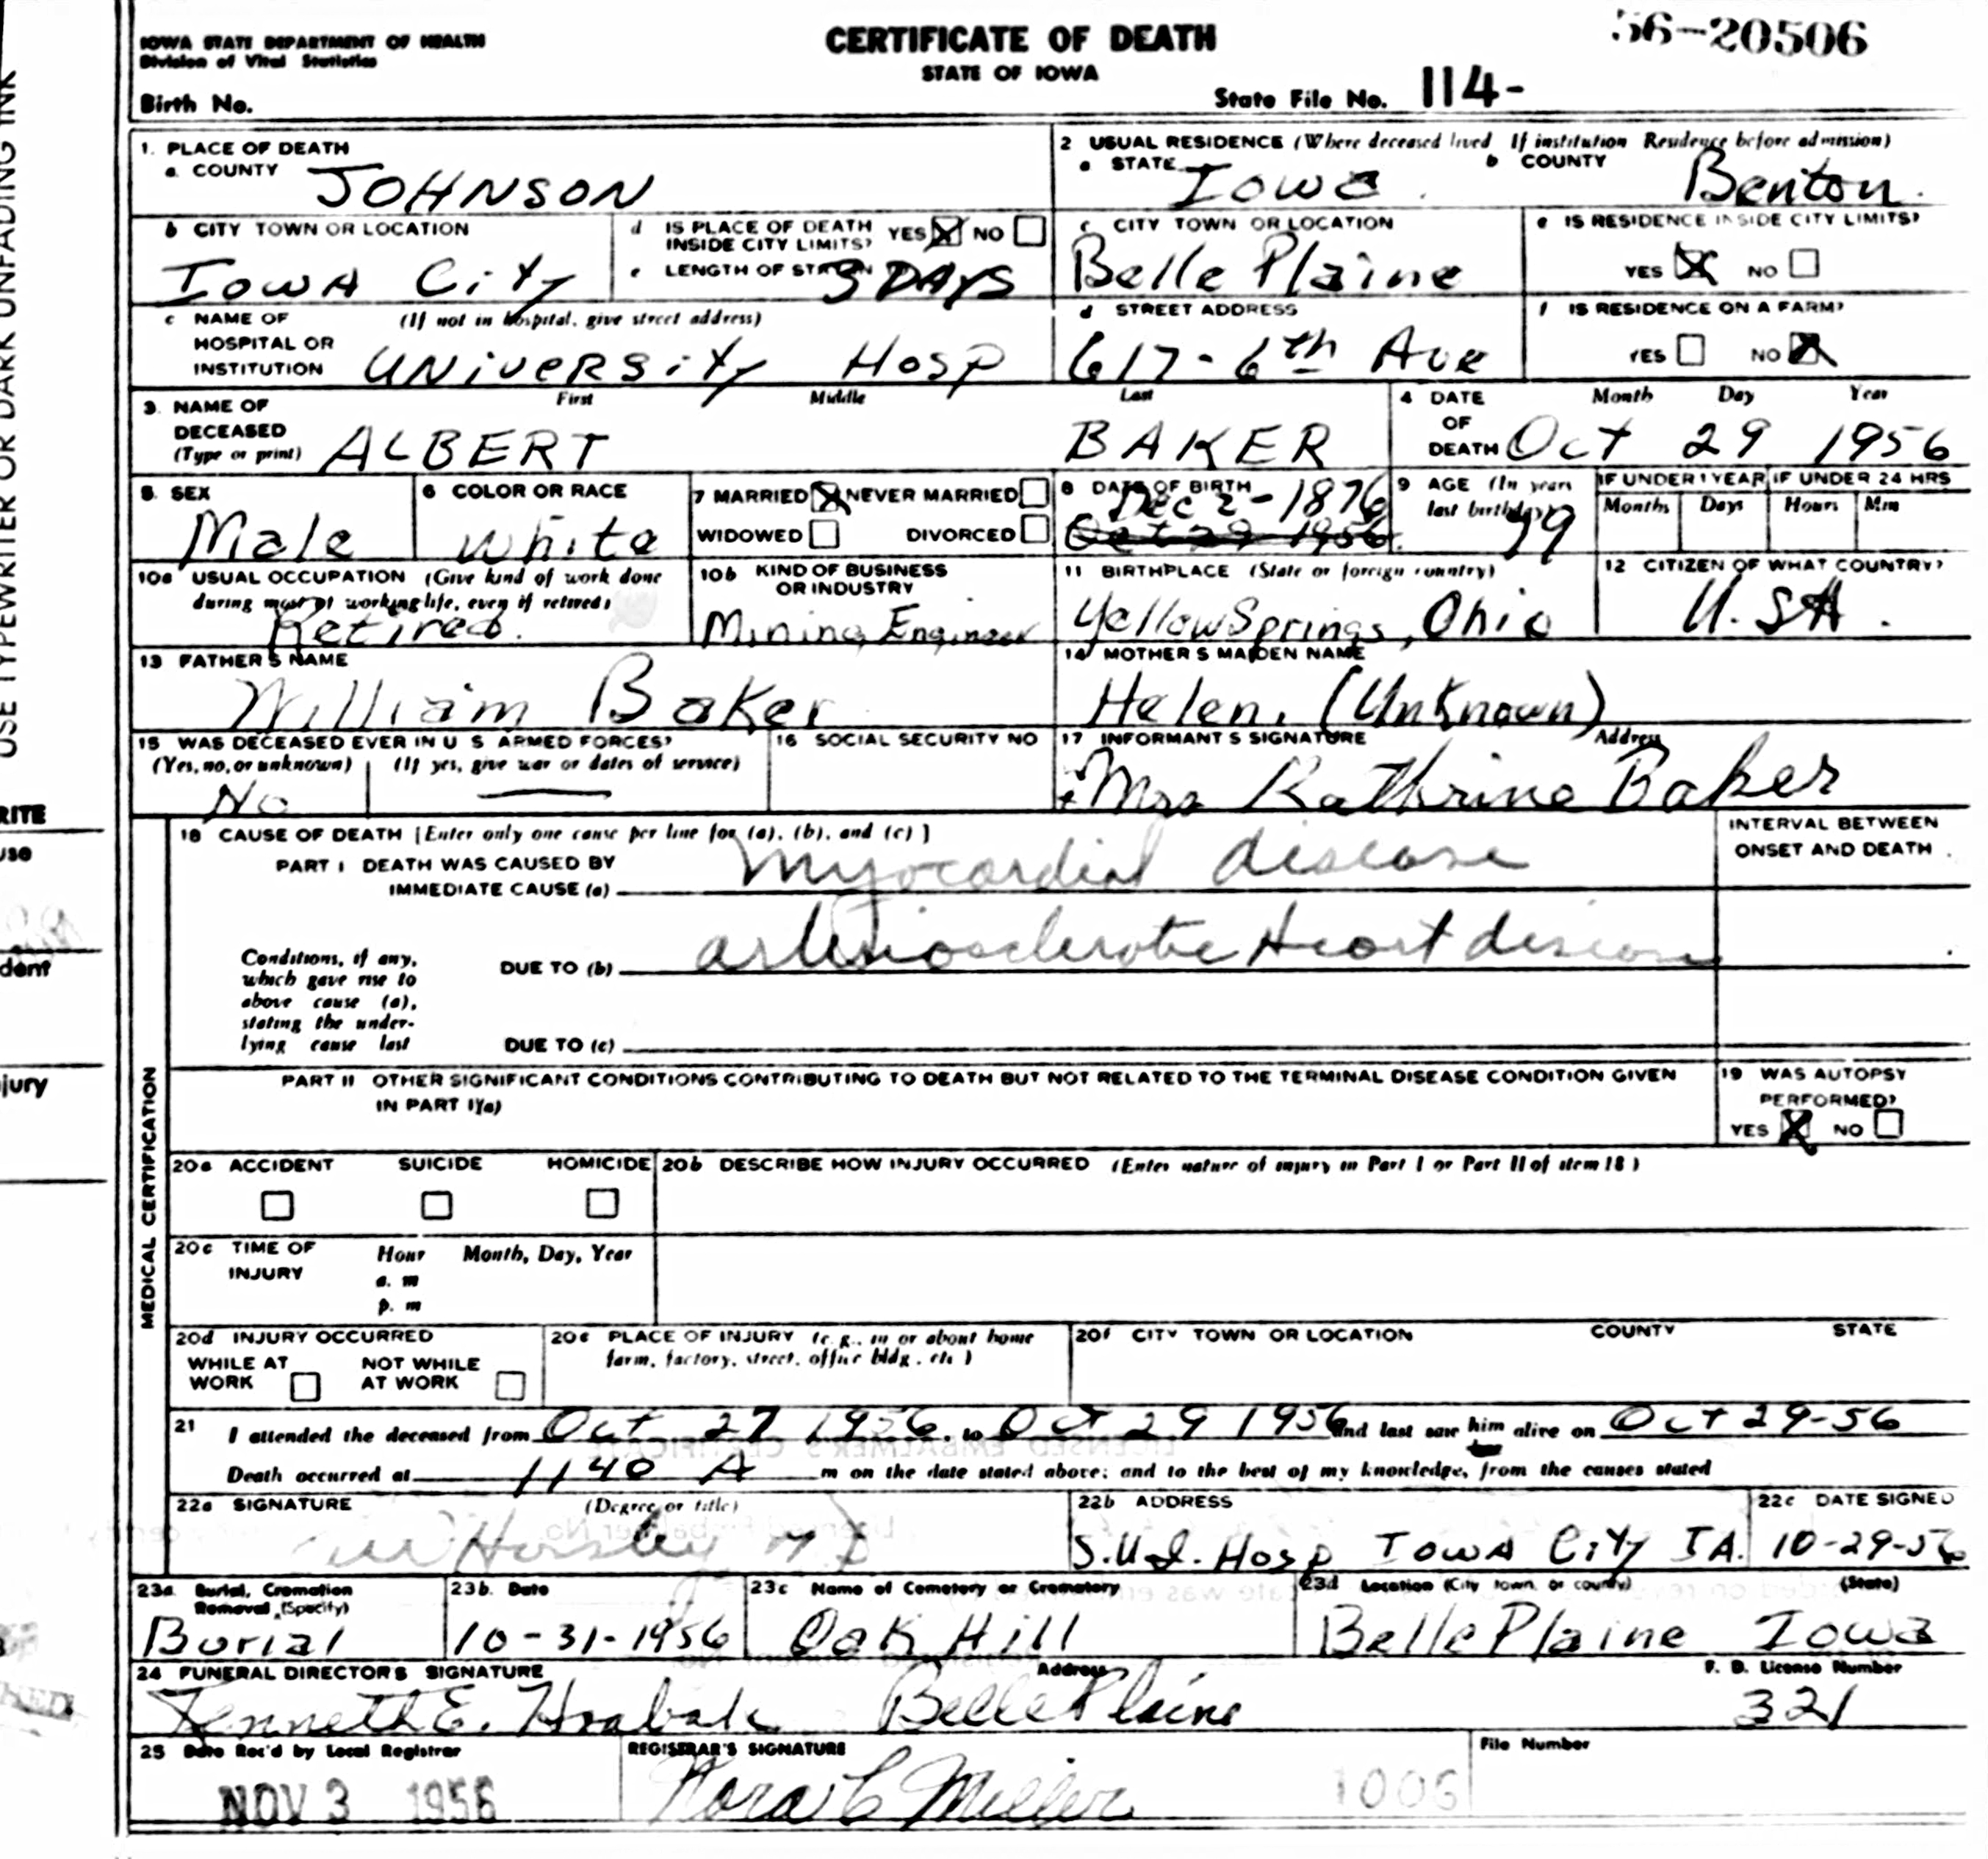 IOWA STATE DEPARTMENT OF HEALTH
Division of Vital Statistics
Birth No.
CERTIFICATE OF DEATH
STATE OF IOWA
56-20506
State File No. 114-
USE TYPEWRITER OR DARK UNFADING INK
1. PLACE OF DEATH
a. COUNTY JOHNSON
2 USUAL RESIDENCE (Where deceased lived If institution Residence before admission)
a STATE Iowa b COUNTY Benton
b CITY TOWN OR LOCATION Iowa City
d IS PLACE OF DEATH INSIDE CITY LIMITS? YES X NO
e LENGTH OF STAY IN 3 DAYS
c CITY TOWN OR LOCATION Belle Plaine
e IS RESIDENCE INSIDE CITY LIMITS?
YES X NO
c NAME OF (If not in hospital, give street address)
HOSPITAL OR
INSTITUTION UNIVERSITY HOSP
d STREET ADDRESS
617-6th Ave
f IS RESIDENCE ON A FARM?
YES NO X
3. NAME OF DECEASED (Type or print) First Middle Last
ALBERT BAKER
4 DATE OF DEATH Month Day Year
Oct 29 1956
5. SEX Male
6 COLOR OR RACE White
7 MARRIED X NEVER MARRIED
WIDOWED DIVORCED
8 DATE OF BIRTH
Dec 2-1876
Oct 29 1956
9 AGE (In years last birthday) 79
IF UNDER 1 YEAR IF UNDER 24 HRS
Months Days Hours Min
10a USUAL OCCUPATION (Give kind of work done
during most of working life, even if retired)
Retired.
10b KIND OF BUSINESS OR INDUSTRY
Mining Engineer
11 BIRTHPLACE (State or foreign country)
Yellow Springs, Ohio
12 CITIZEN OF WHAT COUNTRY?
U.SA.
13 FATHER'S NAME
William Baker
14 MOTHER'S MAIDEN NAME
Helen. (Unknown)
15 WAS DECEASED EVER IN U S ARMED FORCES?
(Yes, no, or unknown) (If yes, give war or dates of service)
No
16 SOCIAL SECURITY NO
17 INFORMANT'S SIGNATURE Address
Mrs Kathrine Baker
MEDICAL CERTIFICATION
18 CAUSE OF DEATH [Enter only one cause per line for (a), (b), and (c)]
PART I DEATH WAS CAUSED BY
IMMEDIATE CAUSE (a) Myocardial disease
INTERVAL BETWEEN
ONSET AND DEATH
Conditions, if any,
which gave rise to
above cause (a),
stating the under-
lying cause last
DUE TO (b) arteriosclerotic Heart disease
DUE TO (c)
PART II OTHER SIGNIFICANT CONDITIONS CONTRIBUTING TO DEATH BUT NOT RELATED TO THE TERMINAL DISEASE CONDITION GIVEN
IN PART I(a)
19 WAS AUTOPSY
PERFORMED?
YES X NO
20a ACCIDENT SUICIDE HOMICIDE
20b DESCRIBE HOW INJURY OCCURRED (Enter nature of injury in Part I or Part II of item 18)
20c TIME OF INJURY Hour Month, Day, Year
a. m
p. m
20d INJURY OCCURRED
WHILE AT WORK NOT WHILE AT WORK
20e PLACE OF INJURY (e.g., in or about home
farm, factory, street, office bldg., etc)
20f CITY TOWN OR LOCATION COUNTY STATE
21 I attended the deceased from Oct 27 1956. to Oct 29 1956 and last saw him alive on Oct 29-56
Death occurred at 1140 A m on the date stated above; and to the best of my knowledge, from the causes stated
22a SIGNATURE (Degree or title)
22b ADDRESS
S.U.I. Hosp Iowa City IA.
22c DATE SIGNED
10-29-56
23a. Burial, Cremation
Removal (Specify)
Burial
23b. Date
10-31-1956
23c Name of Cemetery or Crematory
Oak Hill
23d Location (City town, or county) (State)
Belle Plaine Iowa
24 FUNERAL DIRECTOR'S SIGNATURE Address F. D. License Number
Kenneth E. Hrabak Belle Plaine 321
25 Date Rec'd by Local Registrar
NOV 3 1956
REGISTRAR'S SIGNATURE
Nora C Miller
1006
File Number